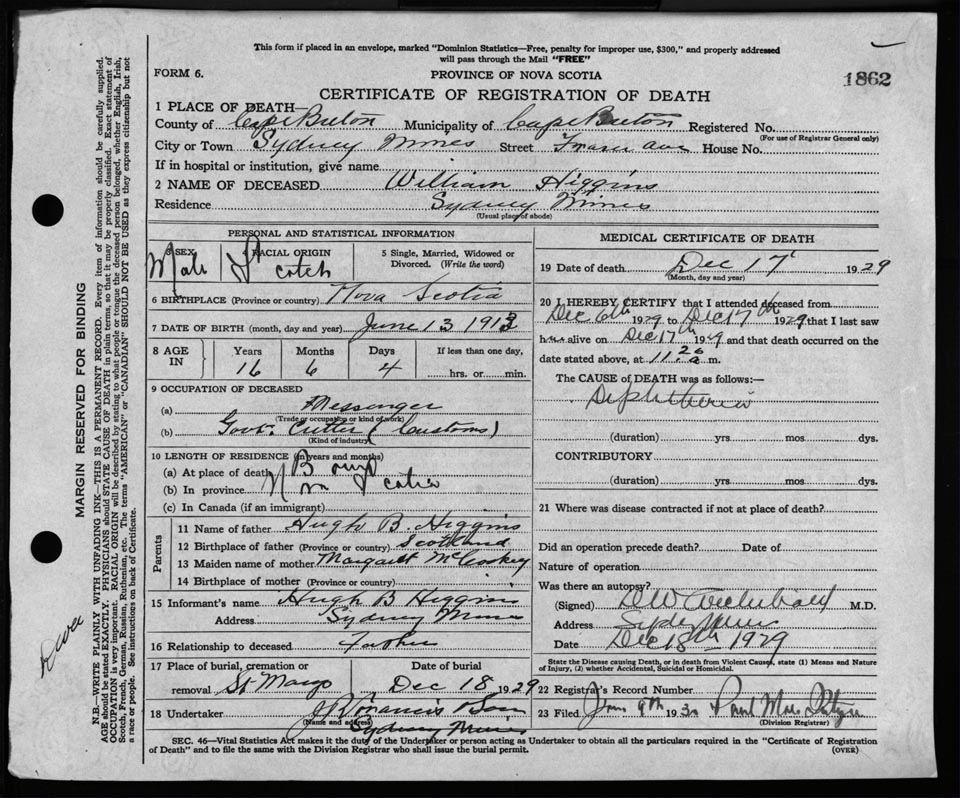 This form if placed in an envelope, marked "Dominion Statistics—Free, penalty for improper use, $300," and properly addressed
will pass through the Mail "FREE"
FORM 6.
PROVINCE OF NOVA SCOTIA
1862
CERTIFICATE OF REGISTRATION OF DEATH
1 PLACE OF DEATH—
County of Cape Breton Municipality of Cape Breton Registered No.
(For use of Registrar General only)
City or Town Sydney Mines Street Fraser Ave House No.
If in hospital or institution, give name
2 NAME OF DECEASED William Higgins
Residence Sydney Mines
(Usual place of abode)
PERSONAL AND STATISTICAL INFORMATION
3 SEX Male
RACIAL ORIGIN Scotch
5 Single, Married, Widowed or
Divorced. (Write the word)
6 BIRTHPLACE (Province or country) Nova Scotia
7 DATE OF BIRTH (month, day and year) June 13 1913
8 AGE IN
Years Months Days If less than one day,
16 6 4 hrs. or min.
9 OCCUPATION OF DECEASED
(a) Messenger
(Trade or occupation or kind of work)
(b) Govt. Cutter (Customs)
(Kind of industry)
10 LENGTH OF RESIDENCE (in years and months)
(a) At place of death
(b) In province Nova Scotia
(c) In Canada (if an immigrant)
Parents
11 Name of father Hugh B. Higgins
12 Birthplace of father (Province or country) Scotland
13 Maiden name of mother Margaret McCoskey
14 Birthplace of mother (Province or country)
15 Informant's name Hugh B Higgins
Address Sydney Mines
16 Relationship to deceased Father
17 Place of burial, cremation or Date of burial
removal St Marys Dec 18 1929
18 Undertaker
(Name and address)
Sydney Mines
MEDICAL CERTIFICATE OF DEATH
19 Date of death Dec 17 1929
(Month, day and year)
20 I HEREBY CERTIFY that I attended deceased from
Dec 6th 1929 to Dec 17th 1929 that I last saw
him alive on Dec 17th 1929 and that death occurred on the
date stated above, at 11.20 m.
The CAUSE of DEATH was as follows:—
Diphtheria
(duration) yrs mos dys.
CONTRIBUTORY
(duration) yrs. mos. dys.
21 Where was disease contracted if not at place of death?
Did an operation precede death? Date of
Nature of operation
Was there an autopsy?
(Signed) D W Archibald M.D.
Address Sydney Mines
Date Dec 18th 1929
State the Disease causing Death, or in death from Violent Causes, state (1) Means and Nature
of Injury, (2) whether Accidental, Suicidal or Homicidal.
22 Registrar's Record Number
23 Filed Jan 9th 1930
(Division Registrar)
SEC. 46—Vital Statistics Act makes it the duty of the Undertaker or person acting as Undertaker to obtain all the particulars required in the "Certificate of Registration
of Death" and to file the same with the Division Registrar who shall issue the burial permit.
(OVER)
MARGIN RESERVED FOR BINDING
N.B.—WRITE PLAINLY WITH UNFADING INK—THIS IS A PERMANENT RECORD. Every item of information should be carefully supplied.
AGE should be stated EXACTLY. PHYSICIANS should STATE CAUSE OF DEATH in plain terms, so that it may be properly classified. Exact statement of
OCCUPATION is very important. RACIAL ORIGIN will be described by stating to what people or tongue the deceased person belonged, whether English, Irish,
Scotch, French, German, Russian, Ruthenian, etc. The terms "AMERICAN" or "CANADIAN" SHOULD NOT BE USED as they express citizenship but not
a race or people. See instructions on back of Certificate.